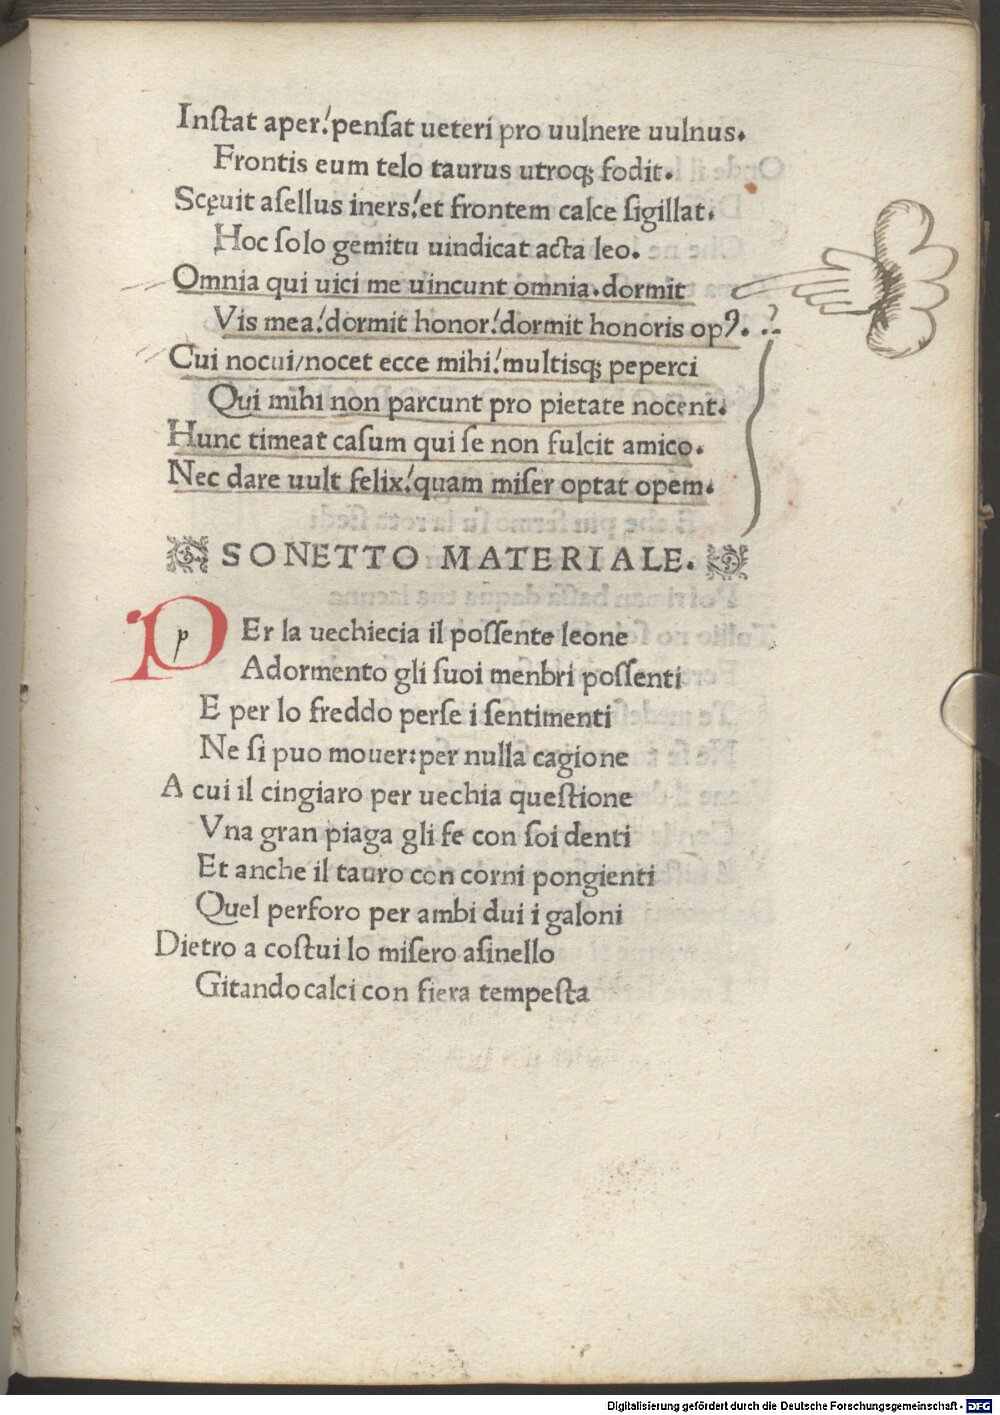 Inſtat aper:/penſat ueteri pro uulnere uulnus.
Frontis eum telo taurus utroq; fodit.
Scęuit aſellus iners:/et frontem calce ſigillat.
Hoc ſolo gemitu uindicat acta leo.
Omnia qui uici me uincunt omnia.dormit
Vis mea:/dormit honor:/dormit honoris opꝰ.
Cui nocui/nocet ecce mihi:/multisq; peperci
Qui mihi non parcunt pro pietate nocent.
Hunc timeat caſum qui ſe non fulcit amico.
Nec dare uult felix:/quam miſer optat opem.
SONETTO MATERIALE.
P p Er la uechiecia il poſſente leone
Adormento gli ſuoi menbri poſſenti
E per lo freddo perſe i ſentimenti
Ne ſi puo mouer:per nulla cagione
A cui il cingiaro per uechia queſtione
Vna gran piaga gli fe con ſoi denti
Et anche il tauro con corni pongienti
Quel perforo per ambi dui i galoni
Dietro a coſtui lo miſero aſinello
Gitando calci con fiera tempeſta
Digitalisierung gefördert durch die Deutsche Forschungsgemeinschaft - DFG